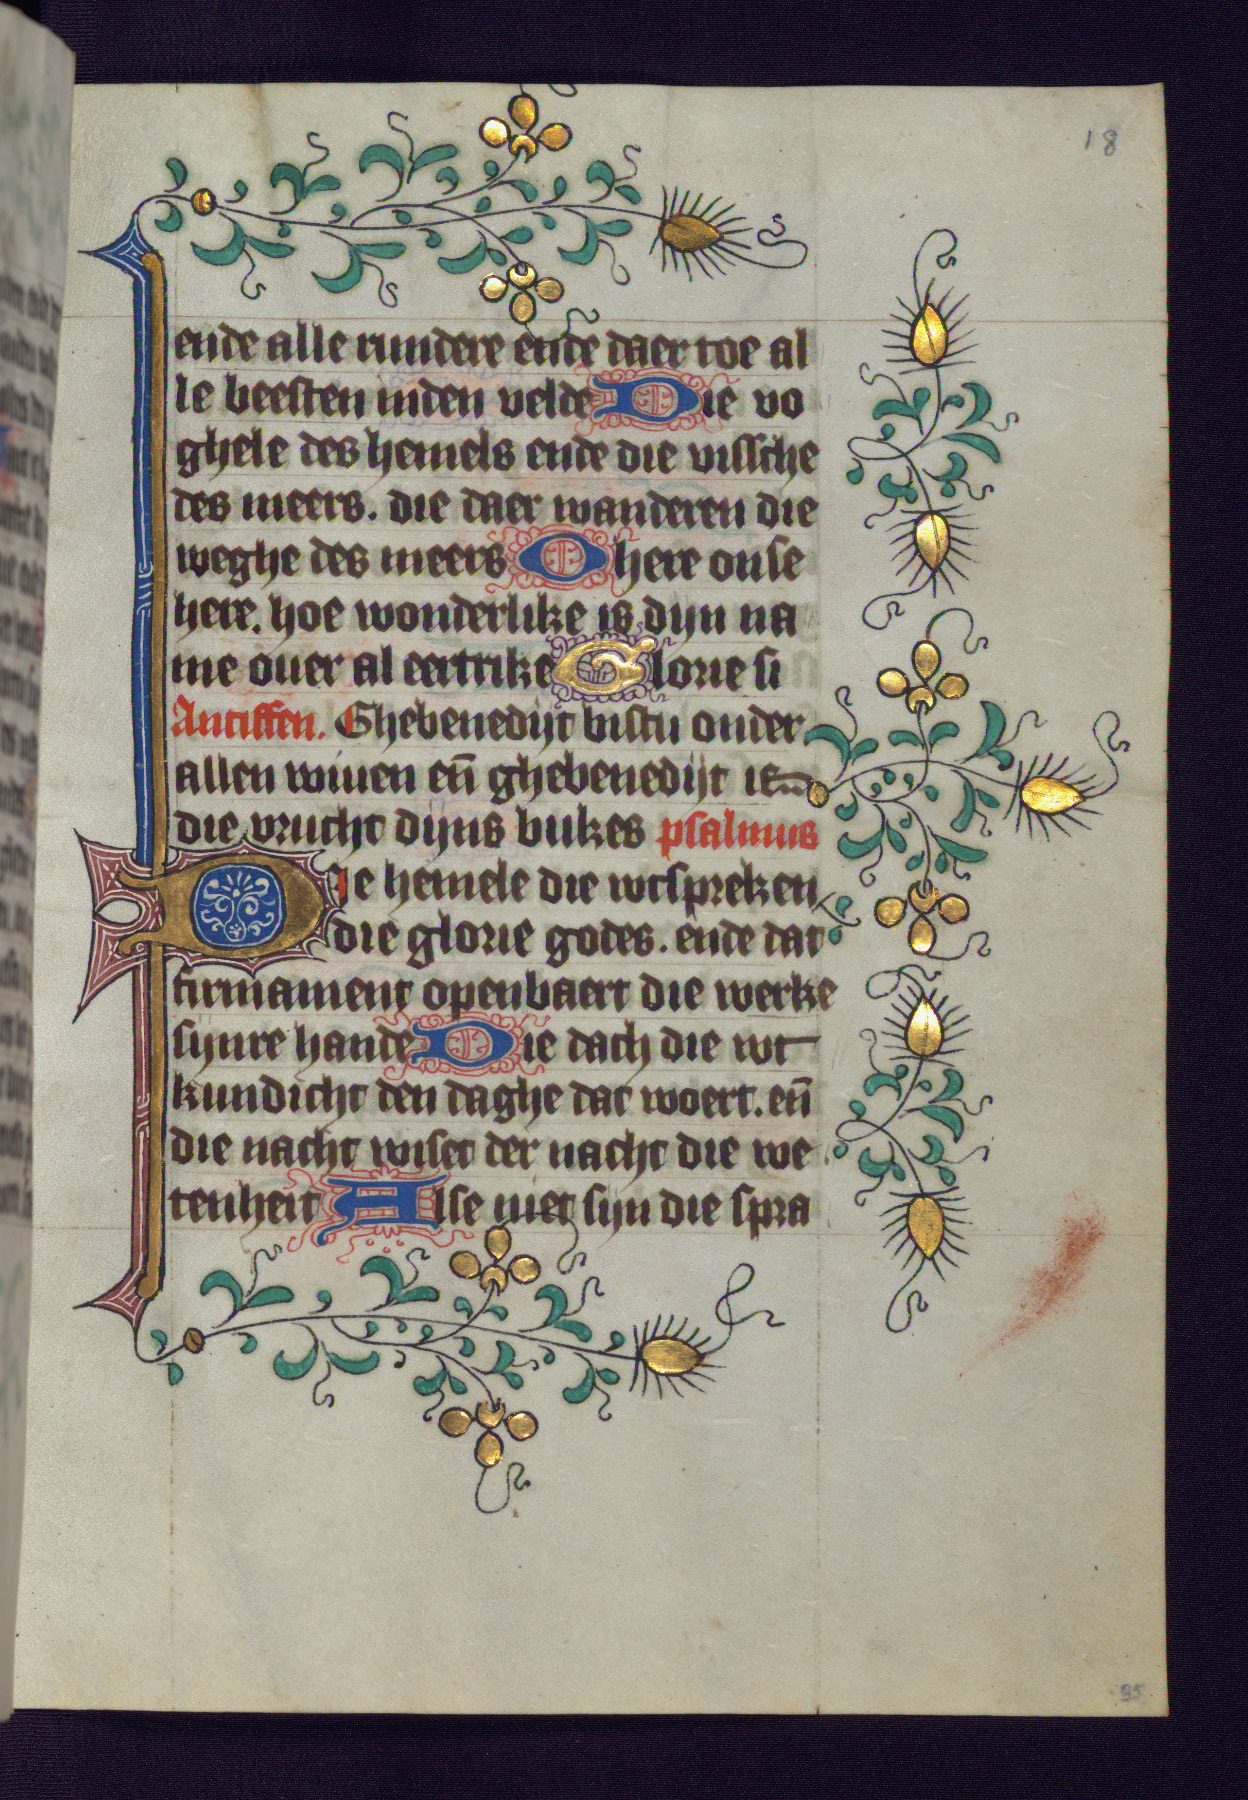 18
ende alle rundere ende daer toe al
le beesten inden velde Die vo
ghele des hemels ende die vissche
des meers. die daer wanderen die
weghe des meers O here onse
here. hoe wonderlike is dijn na
me ouer al eertrike Glorie si
Antiffen. Ghebenedijt bistu onder
allen wiuen eñ ghebenedijt is
die vrucht dijns bukes psalmus
Die hemele die wtspreken
die glorie godes. ende dat
firmament openbaert die werke
sijnre hande Die dach die wt
kundicht den daghe dat woert. eñ
die nacht wiset der nacht die we
tenheit Alse niet sijn die spra
35